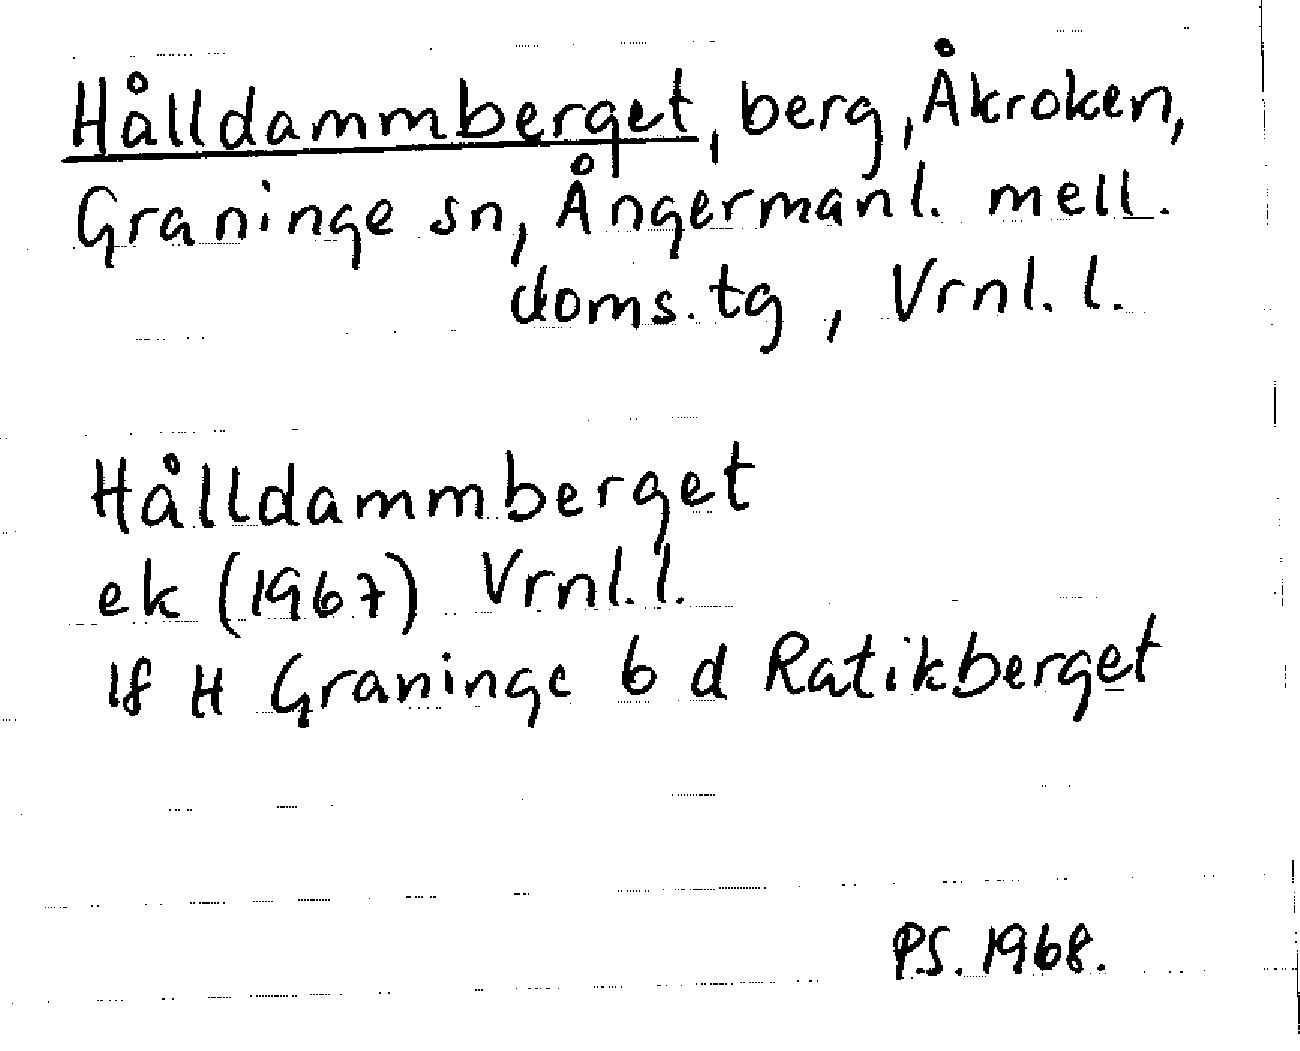 Hålldammberget, berg, Åkroken,
Graninge sn, Ångermanl. mell.
doms.tg, Vrnl. l.
Hålldammberget
ek (1967) Vrnl. l.
lf H Graninge 6 d Ratikberget
P.S. 1968.